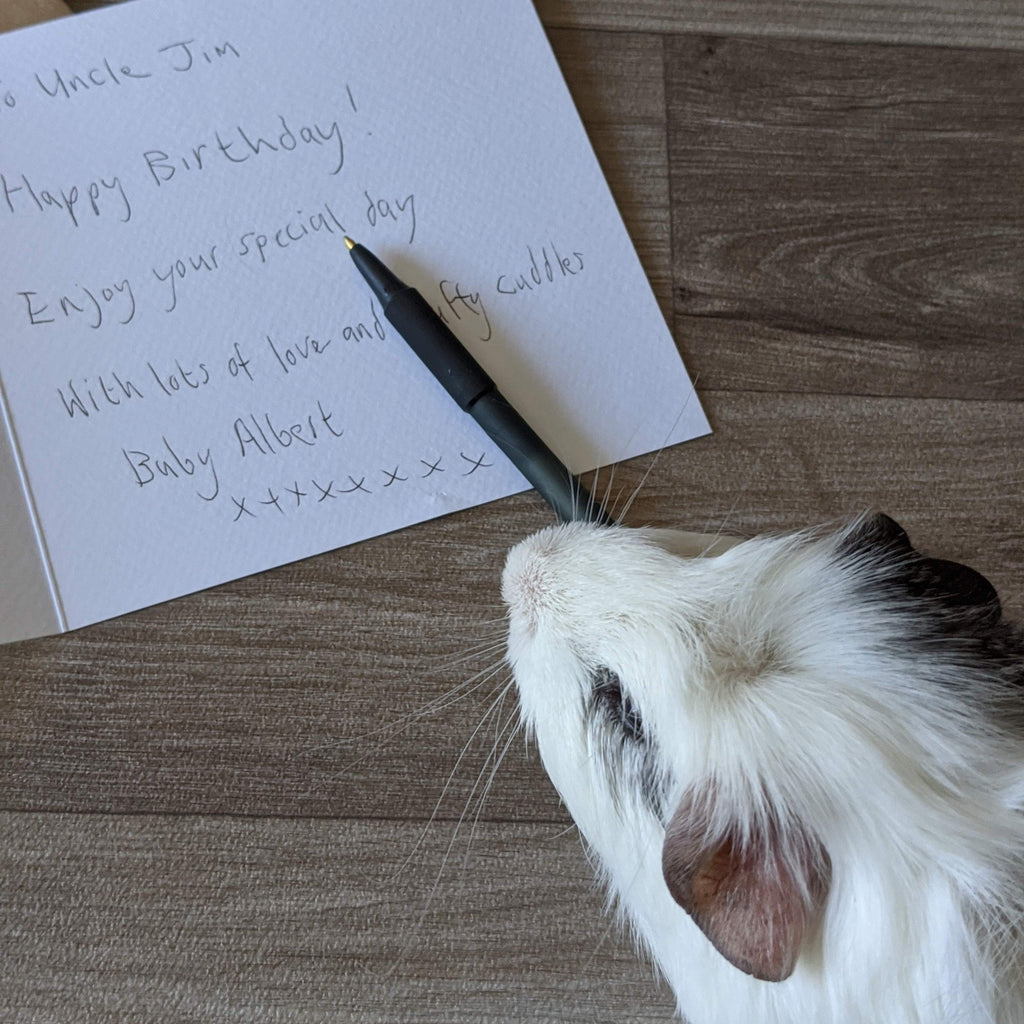 To Uncle Jim
Happy Birthday!
Enjoy your special day
With lots of love and cuddles
Baby Albert
x+xxx x x x